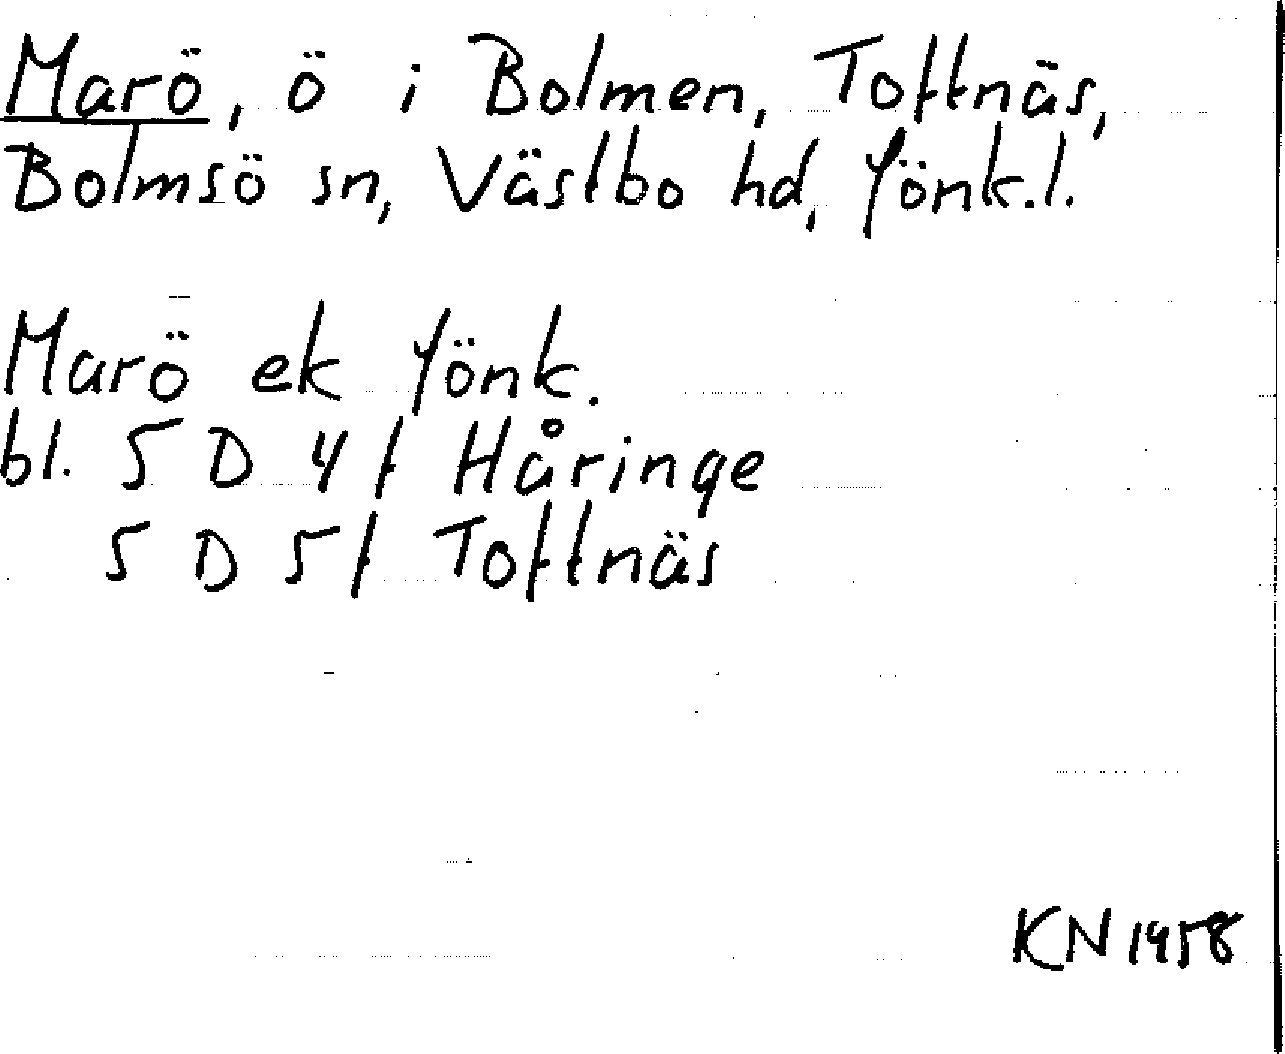 Marö, ö i Bolmen, Toftnäs,
Bolmsö sn, Västbo hd, Jönk.l.
Marö ek Jönk.
bl. 5 D 4 f Håringe
5 D 5 f Toftnäs
KN 1958